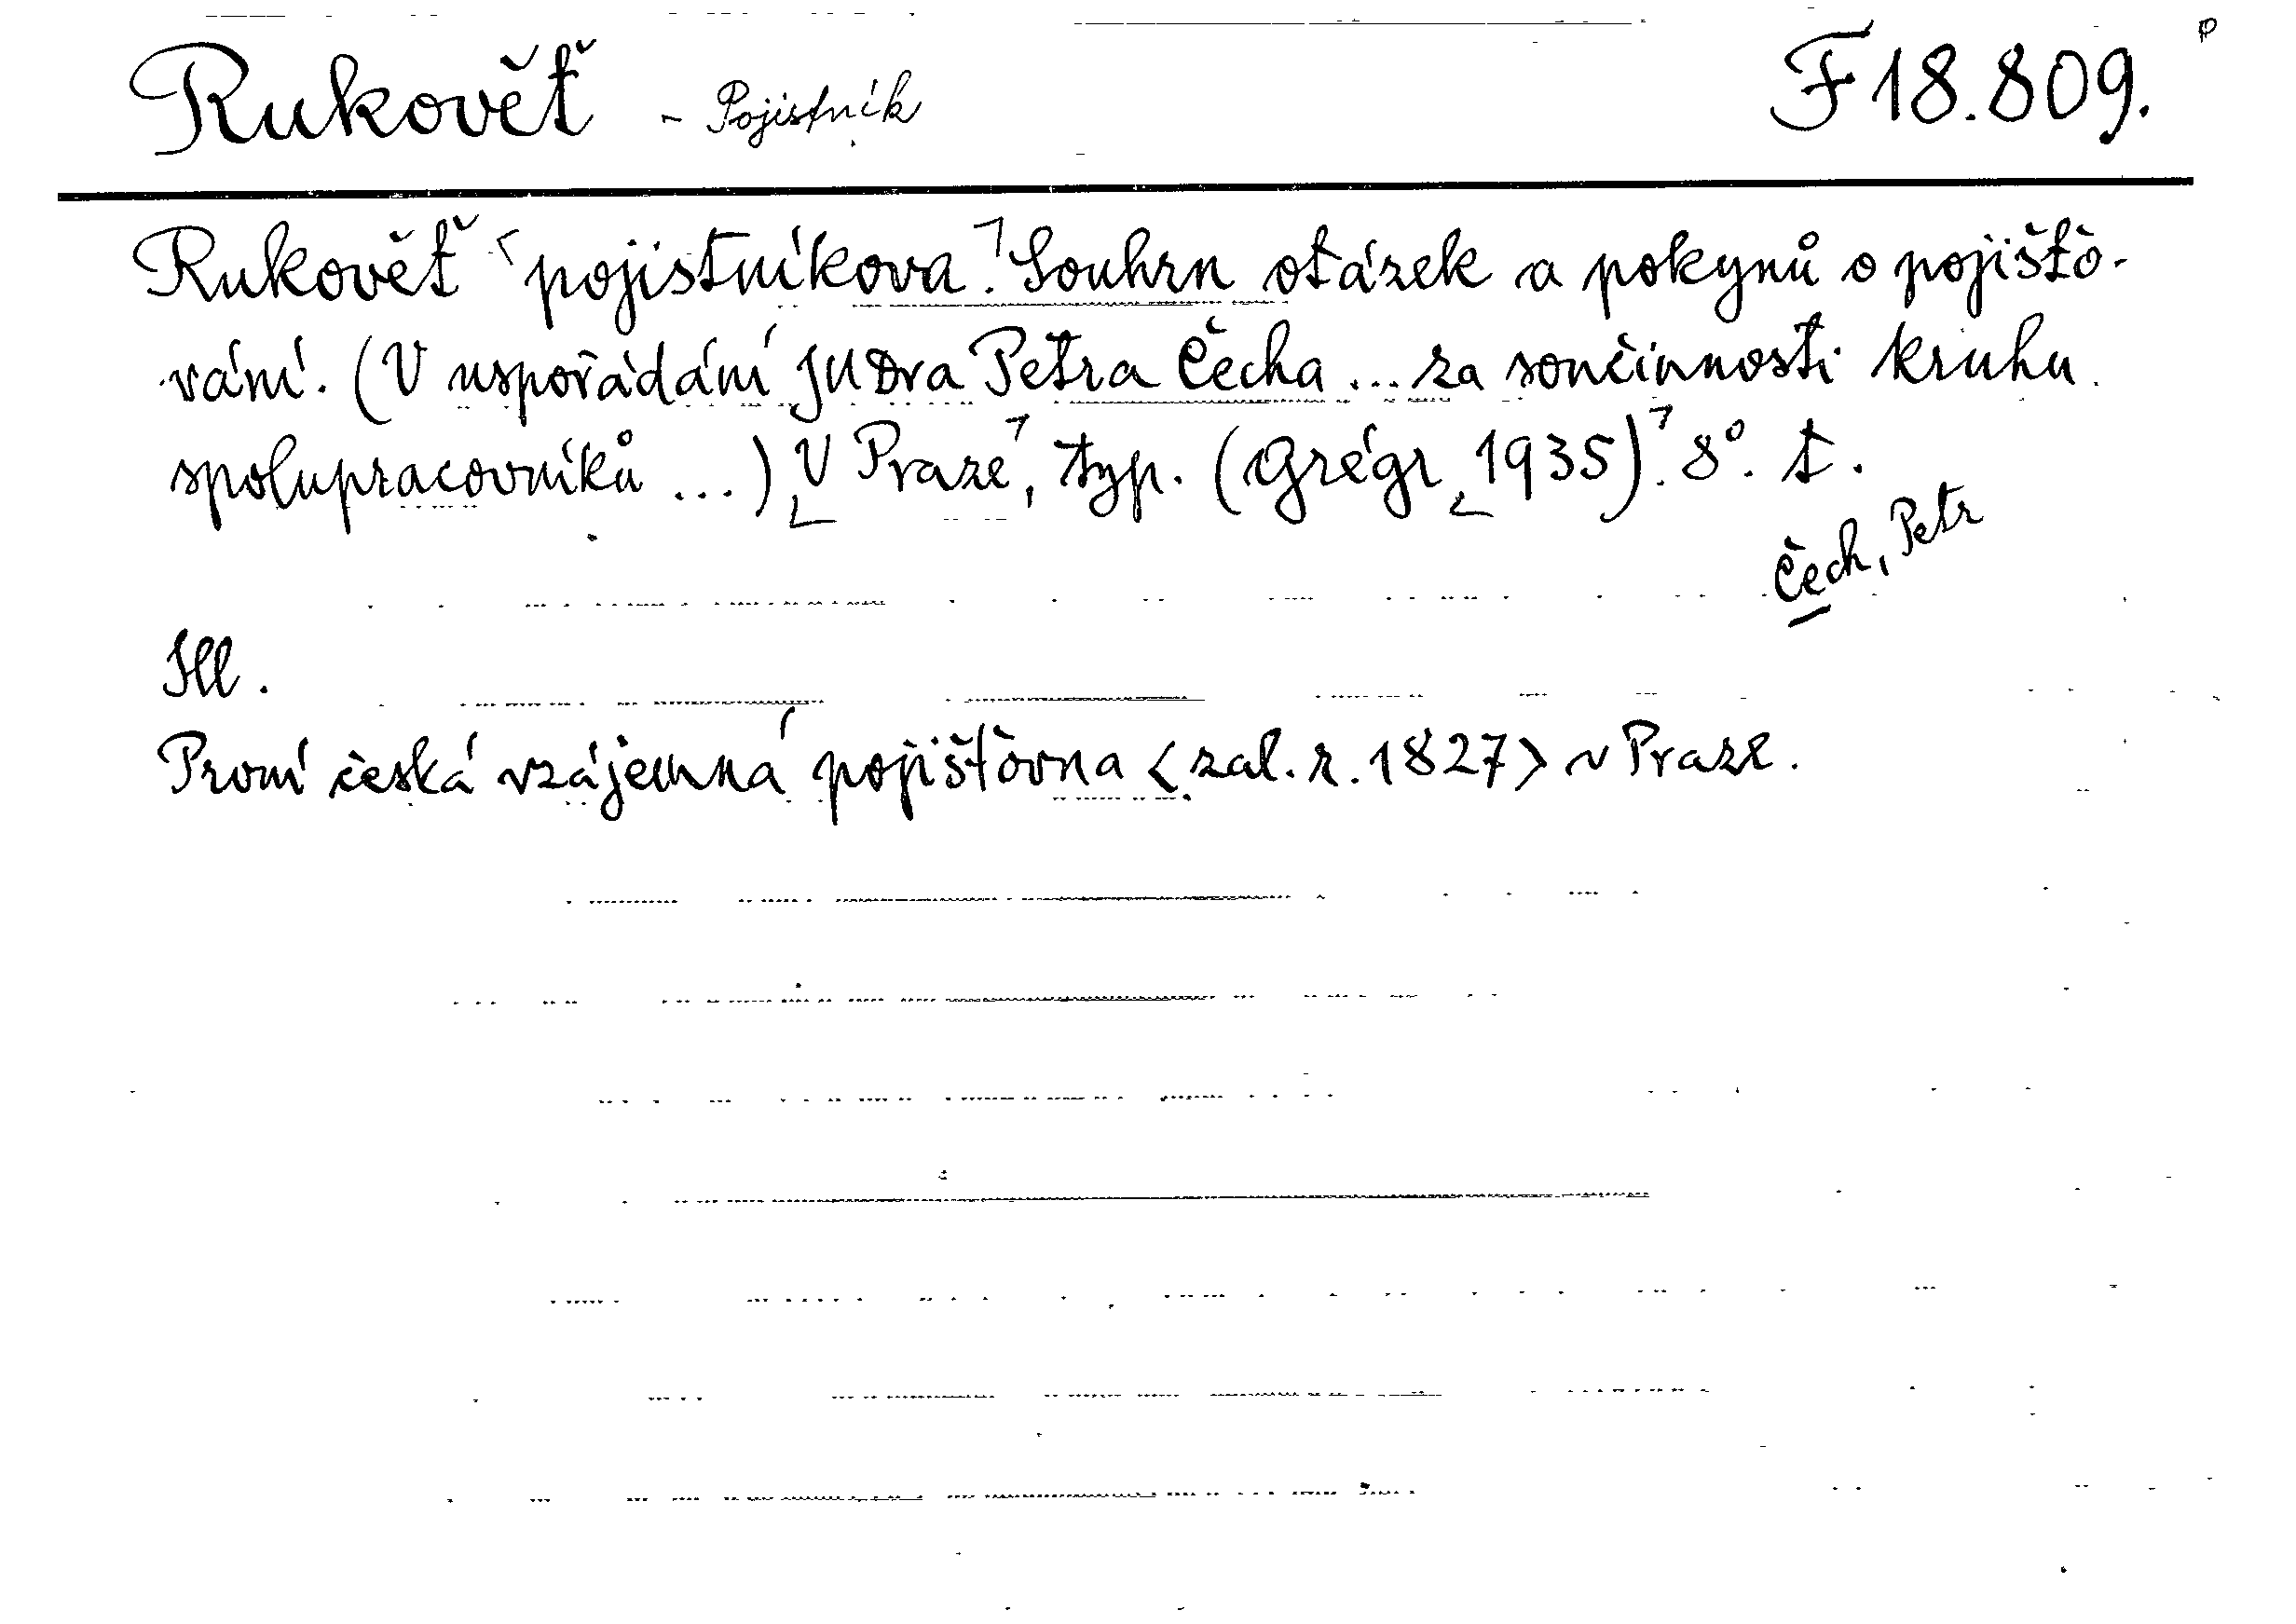 Rukověť - Pojistník F 18.809. p
Rukověť pojistníkova. Souhrn otázek a pokynů o pojišťo-
vání. (V uspořádání JUDra Petra Čecha ... za součinnosti kruhu
spolupracovníků ...) V Praze, typ. (Grégr 1935). 8°. t.
Čech, Petr
Ill.
První česká vzájemná pojišťovna <zal. r. 1827> v Praze.